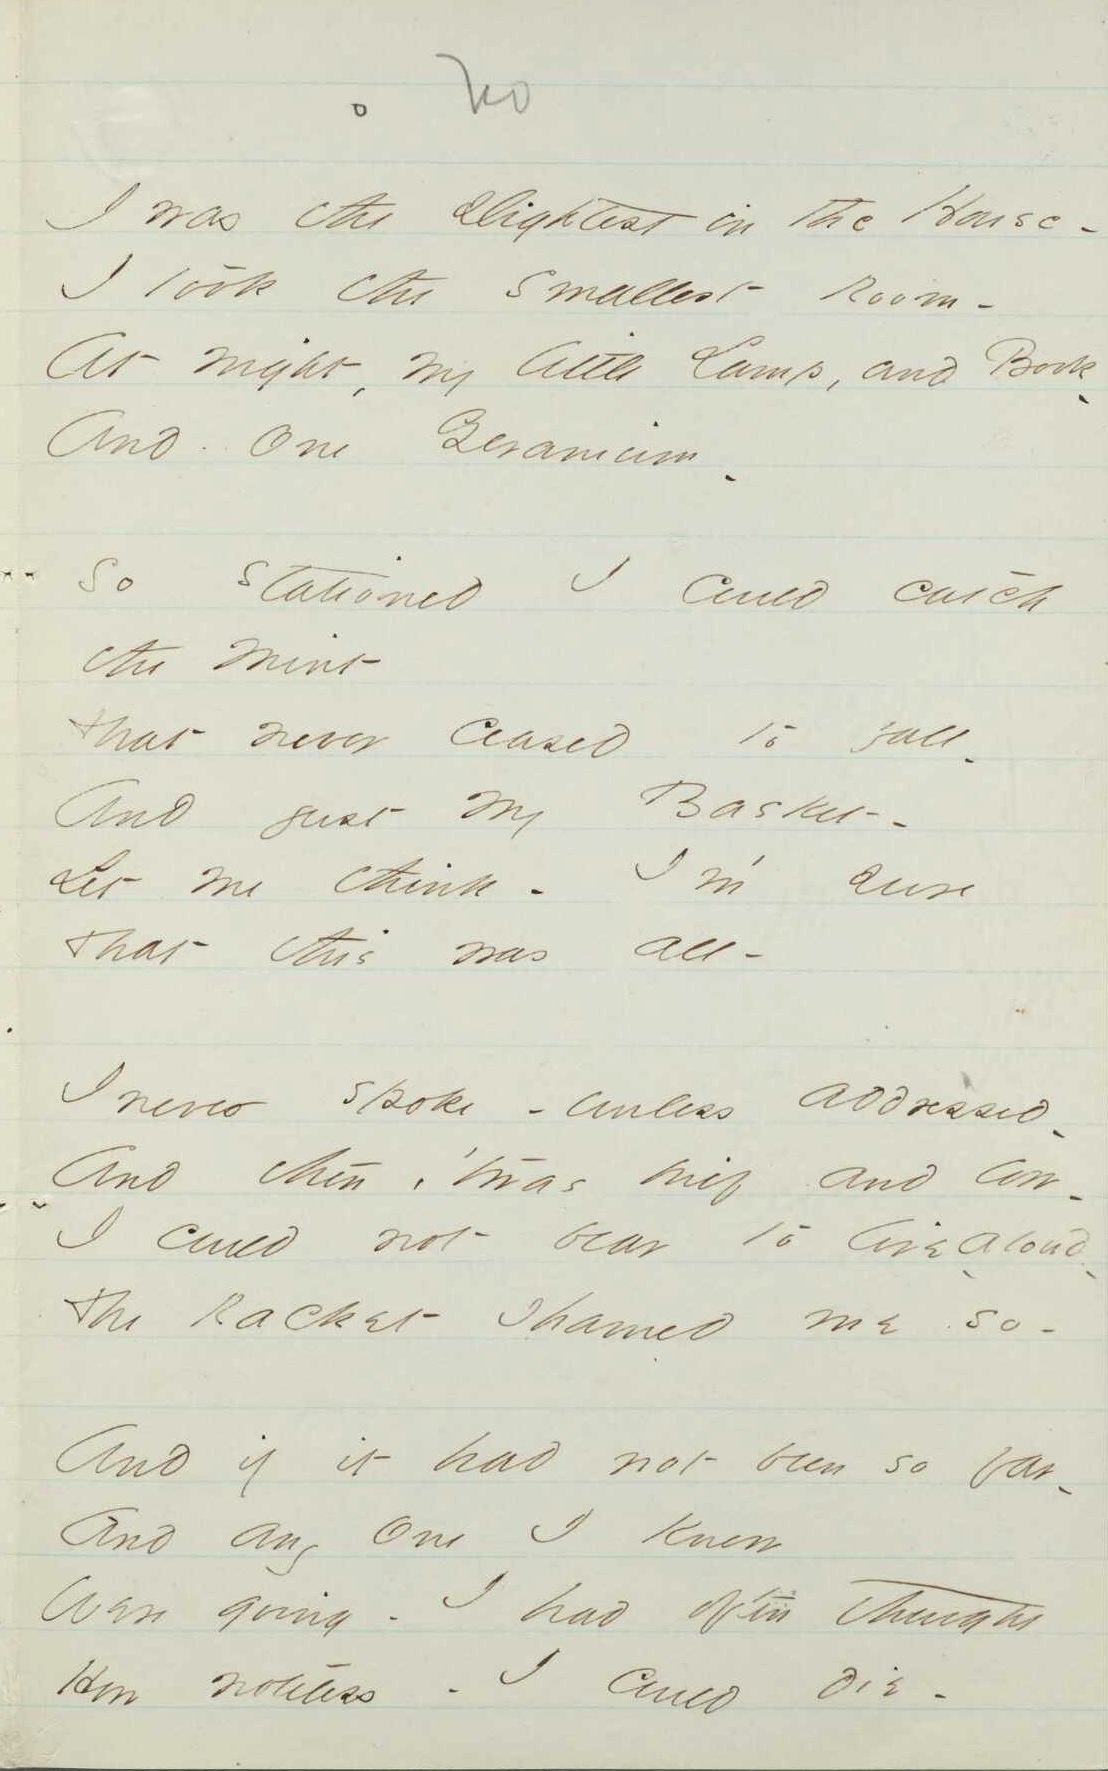 no
I was the slightest in the House -
I took the smallest Room -
At night, my little Lamp, and Book -
And one Geranium -
So stationed I could catch
the mint
That never ceased to fall -
And just my Basket -
Let me think - I'm sure
That this was all -
I never spoke - unless addressed -
And then, 'twas brief and low -
I could not bear to live - aloud -
The Racket shamed me so -
And if it had not been so far -
And any one I knew
Were going - I had often thought
How noteless - I could die -